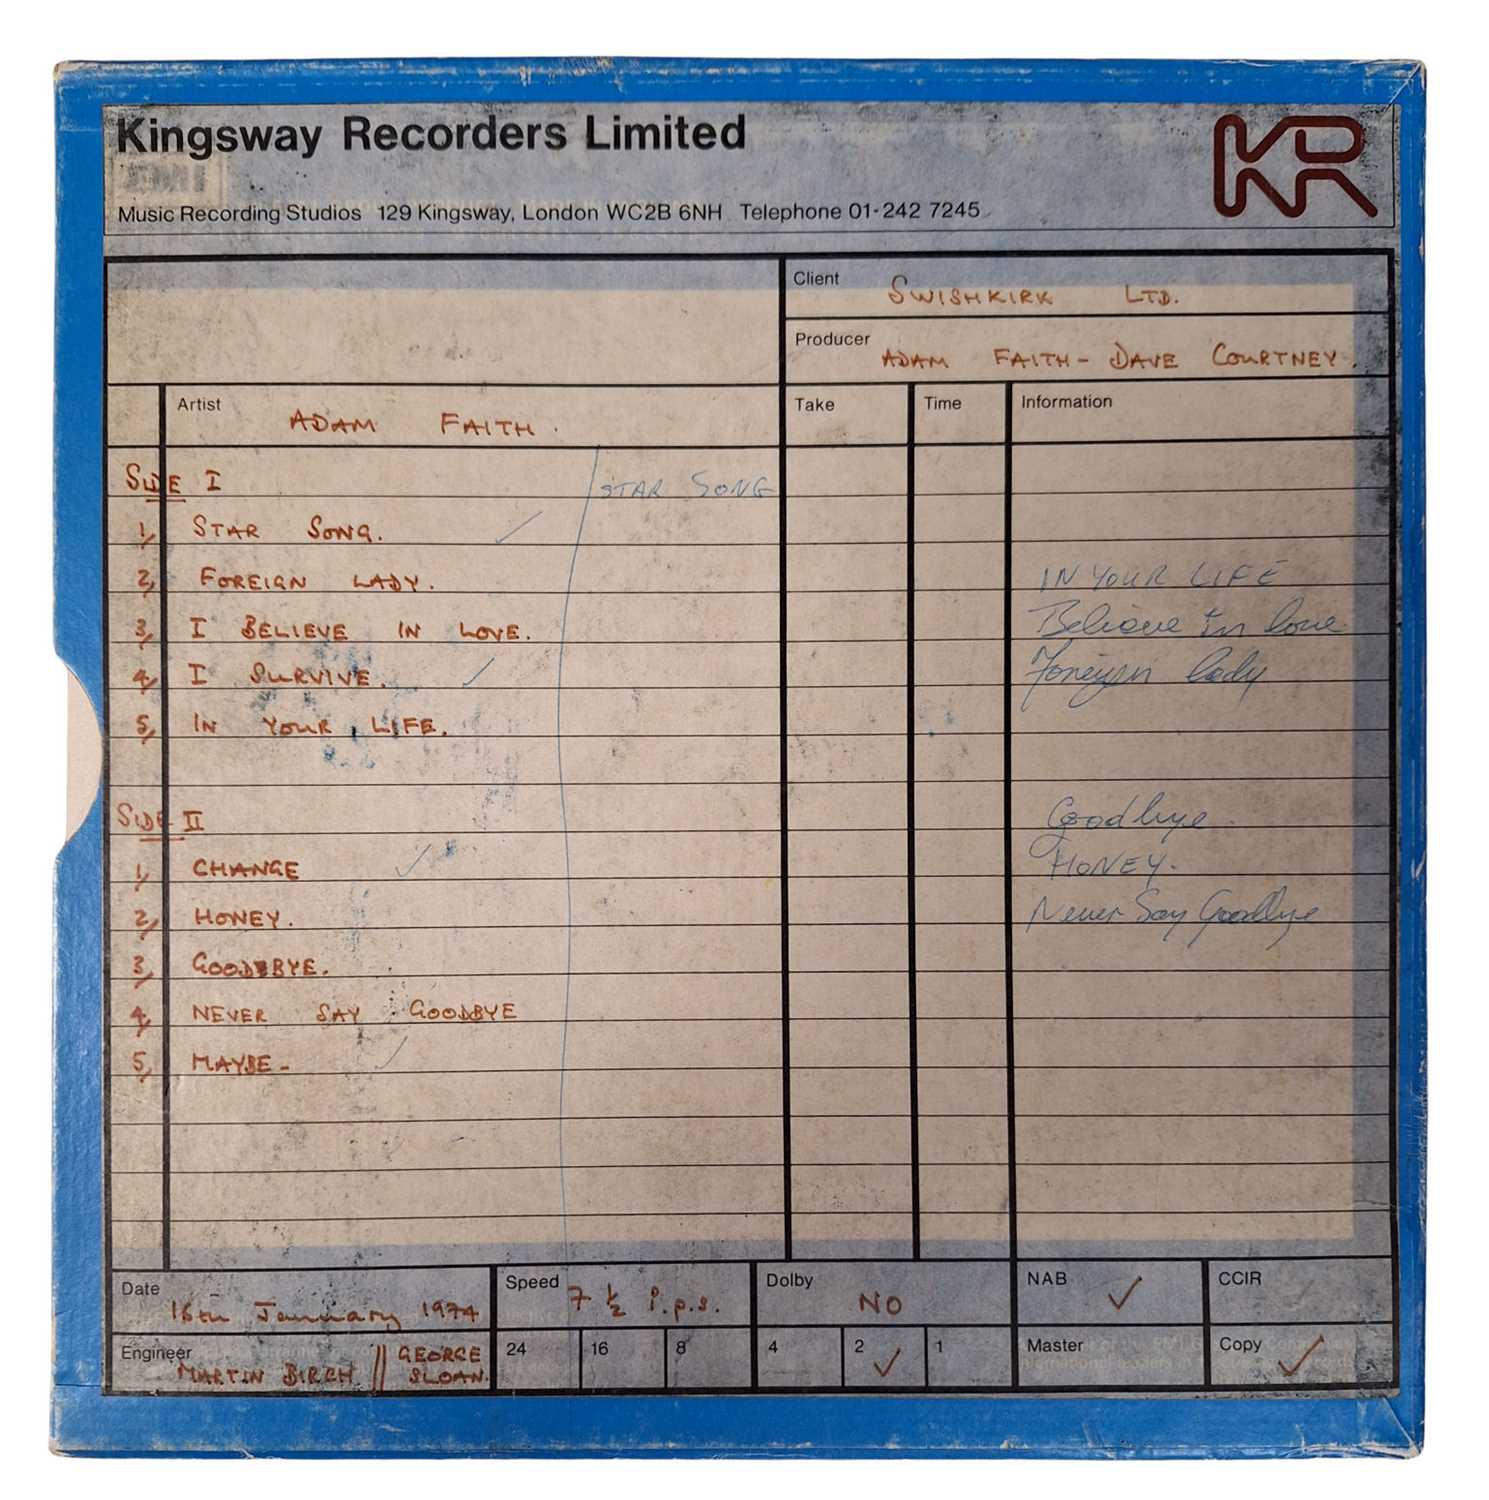 Kingsway Recorders Limited
KR
Music Recording Studios 129 Kingsway, London WC2B 6NH Telephone 01·242 7245
Client SWISHKIRK LTD.
Producer ADAM FAITH - DAVE COURTNEY.
Artist ADAM FAITH.
Take
Time
Information
SIDE I STAR SONG
1, STAR SONG. ✓
2, FOREIGN LADY. IN YOUR LIFE
3, I BELIEVE IN LOVE. Believe in love
4, I SURVIVE. ✓ Foreign lady
5, IN YOUR LIFE.
SIDE II Goodbye.
1, CHANGE ✓ HONEY.
2, HONEY. Never Say Goodbye
3, GOODBYE.
4, NEVER SAY GOODBYE
5, MAYBE - ✓
Date 16th January 1974
Speed 7 ½ i.p.s.
Dolby NO
NAB ✓
CCIR
Engineer MARTIN BIRCH // GEORGE SLOAN.
24 16 8 4 2 ✓ 1
Master
Copy ✓